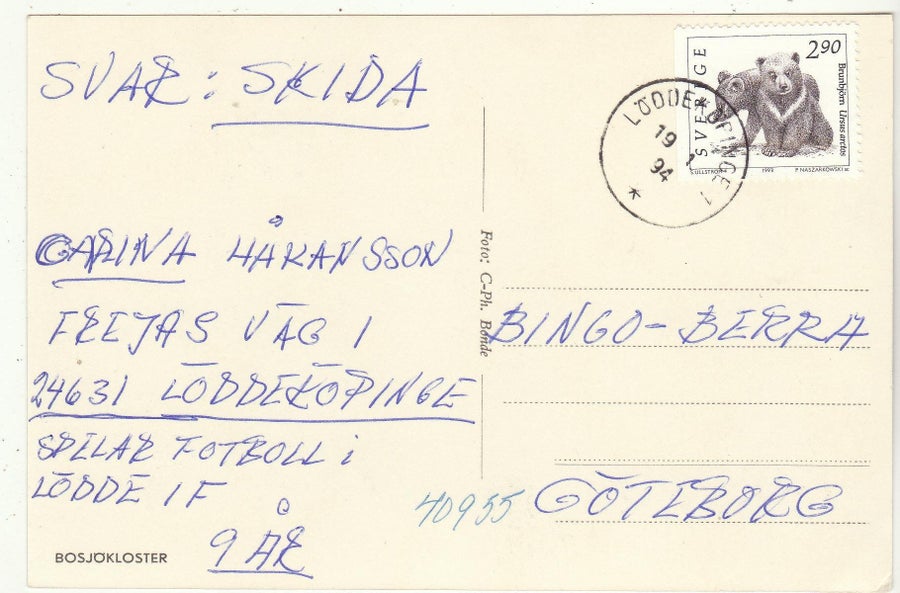 SVAR: SKIDA
CARINA HÅKANSSON
FREJAS VÄG 1
24631 LÖDDEKÖPINGE
SPELAR FOTBOLL i
LÖDDE IF
9 ÅR
BOSJÖKLOSTER
Foto: C-Ph. Bonde
SVERIGE
2.90
Brunbjörn Ursus arctos
1993
P NASZARKOWSKI sc
LÖDDEKÖPINGE 1
19 1
94
BINGO-BERRA
40955 GÖTEBORG